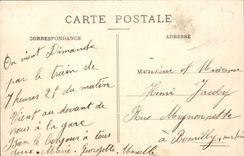 CARTE POSTALE
CORRESPONDANCE
ADRESSE
On vient Dimanche
par le train de
7 heures 25 du matin
Vient au devant de
nous à la gare
Bien le bonjour à tous
deux. Marie Georgette
Monsieur et Madame
Henri
Rue
à Romilly sur Seine